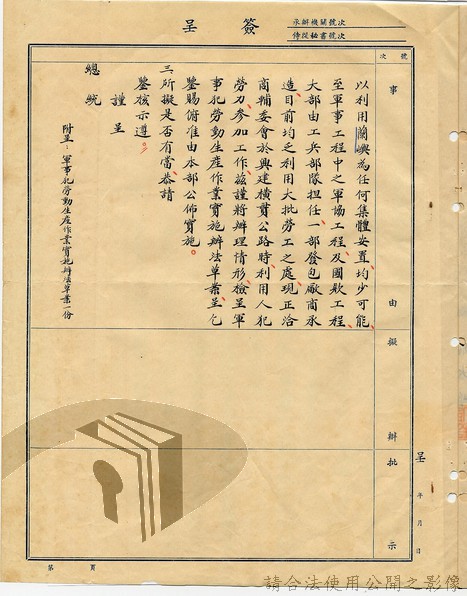 簽呈
承辦機關號次
侍從秘書號次
號次
事由
擬辦
批示
呈 年 月 日
以利用蘭嶼為任何集體安置、均少可能、
至軍事工程中之軍協工程、及國款工程、
大部由工兵部隊担任、一部發包廠商承
造、目前均乏利用大批勞工之處、現正洽
商輔委會於興建橫貫公路時、利用人犯
勞力、參加工作、茲謹將辦理情形、檢呈軍
事犯勞動生產作業實施辦法草案呈乞
鑒賜俯准由本部公佈實施。
三、所擬是否有當、恭請
鑒核示遵。
謹呈
總統
附呈：軍事犯勞動生產作業實施辦法草案一份
第 頁
請合法使用公開之影像